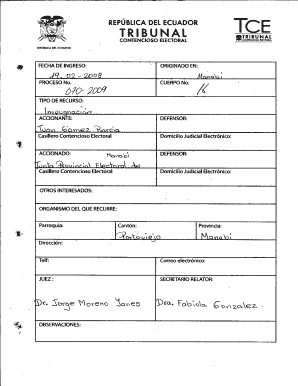 REPÚBLICA DEL ECUADOR
TRIBUNAL
CONTENCIOSO ELECTORAL
REPÚBLICA DEL ECUADOR
TCE
TRIBUNAL
FECHA DE INGRESO:
19-02-2008
ORIGINADO EN:
Manabí
PROCESO No.
070-2009
CUERPO No.
16
TIPO DE RECURSO:
Impugnación
ACCIONANTE:
Juan Gómez García
DEFENSOR:
Casillero Contencioso Electoral
Domicilio Judicial Electrónico:
ACCIONADO: Manabí
Junta Provincial Electoral de
DEFENSOR:
Casillero Contencioso Electoral
Domicilio Judicial Electrónico:
OTROS INTERESADOS:
ORGANISMO DEL QUE RECURRE:
Parroquia:
Cantón:
Portoviejo
Provincia:
Manabí
Dirección:
Telf:
Correo electrónico:
JUEZ :
Dr. Jorge Moreno Yanes
SECRETARIO RELATOR:
Dra. Fabiola González
OBSERVACIONES: